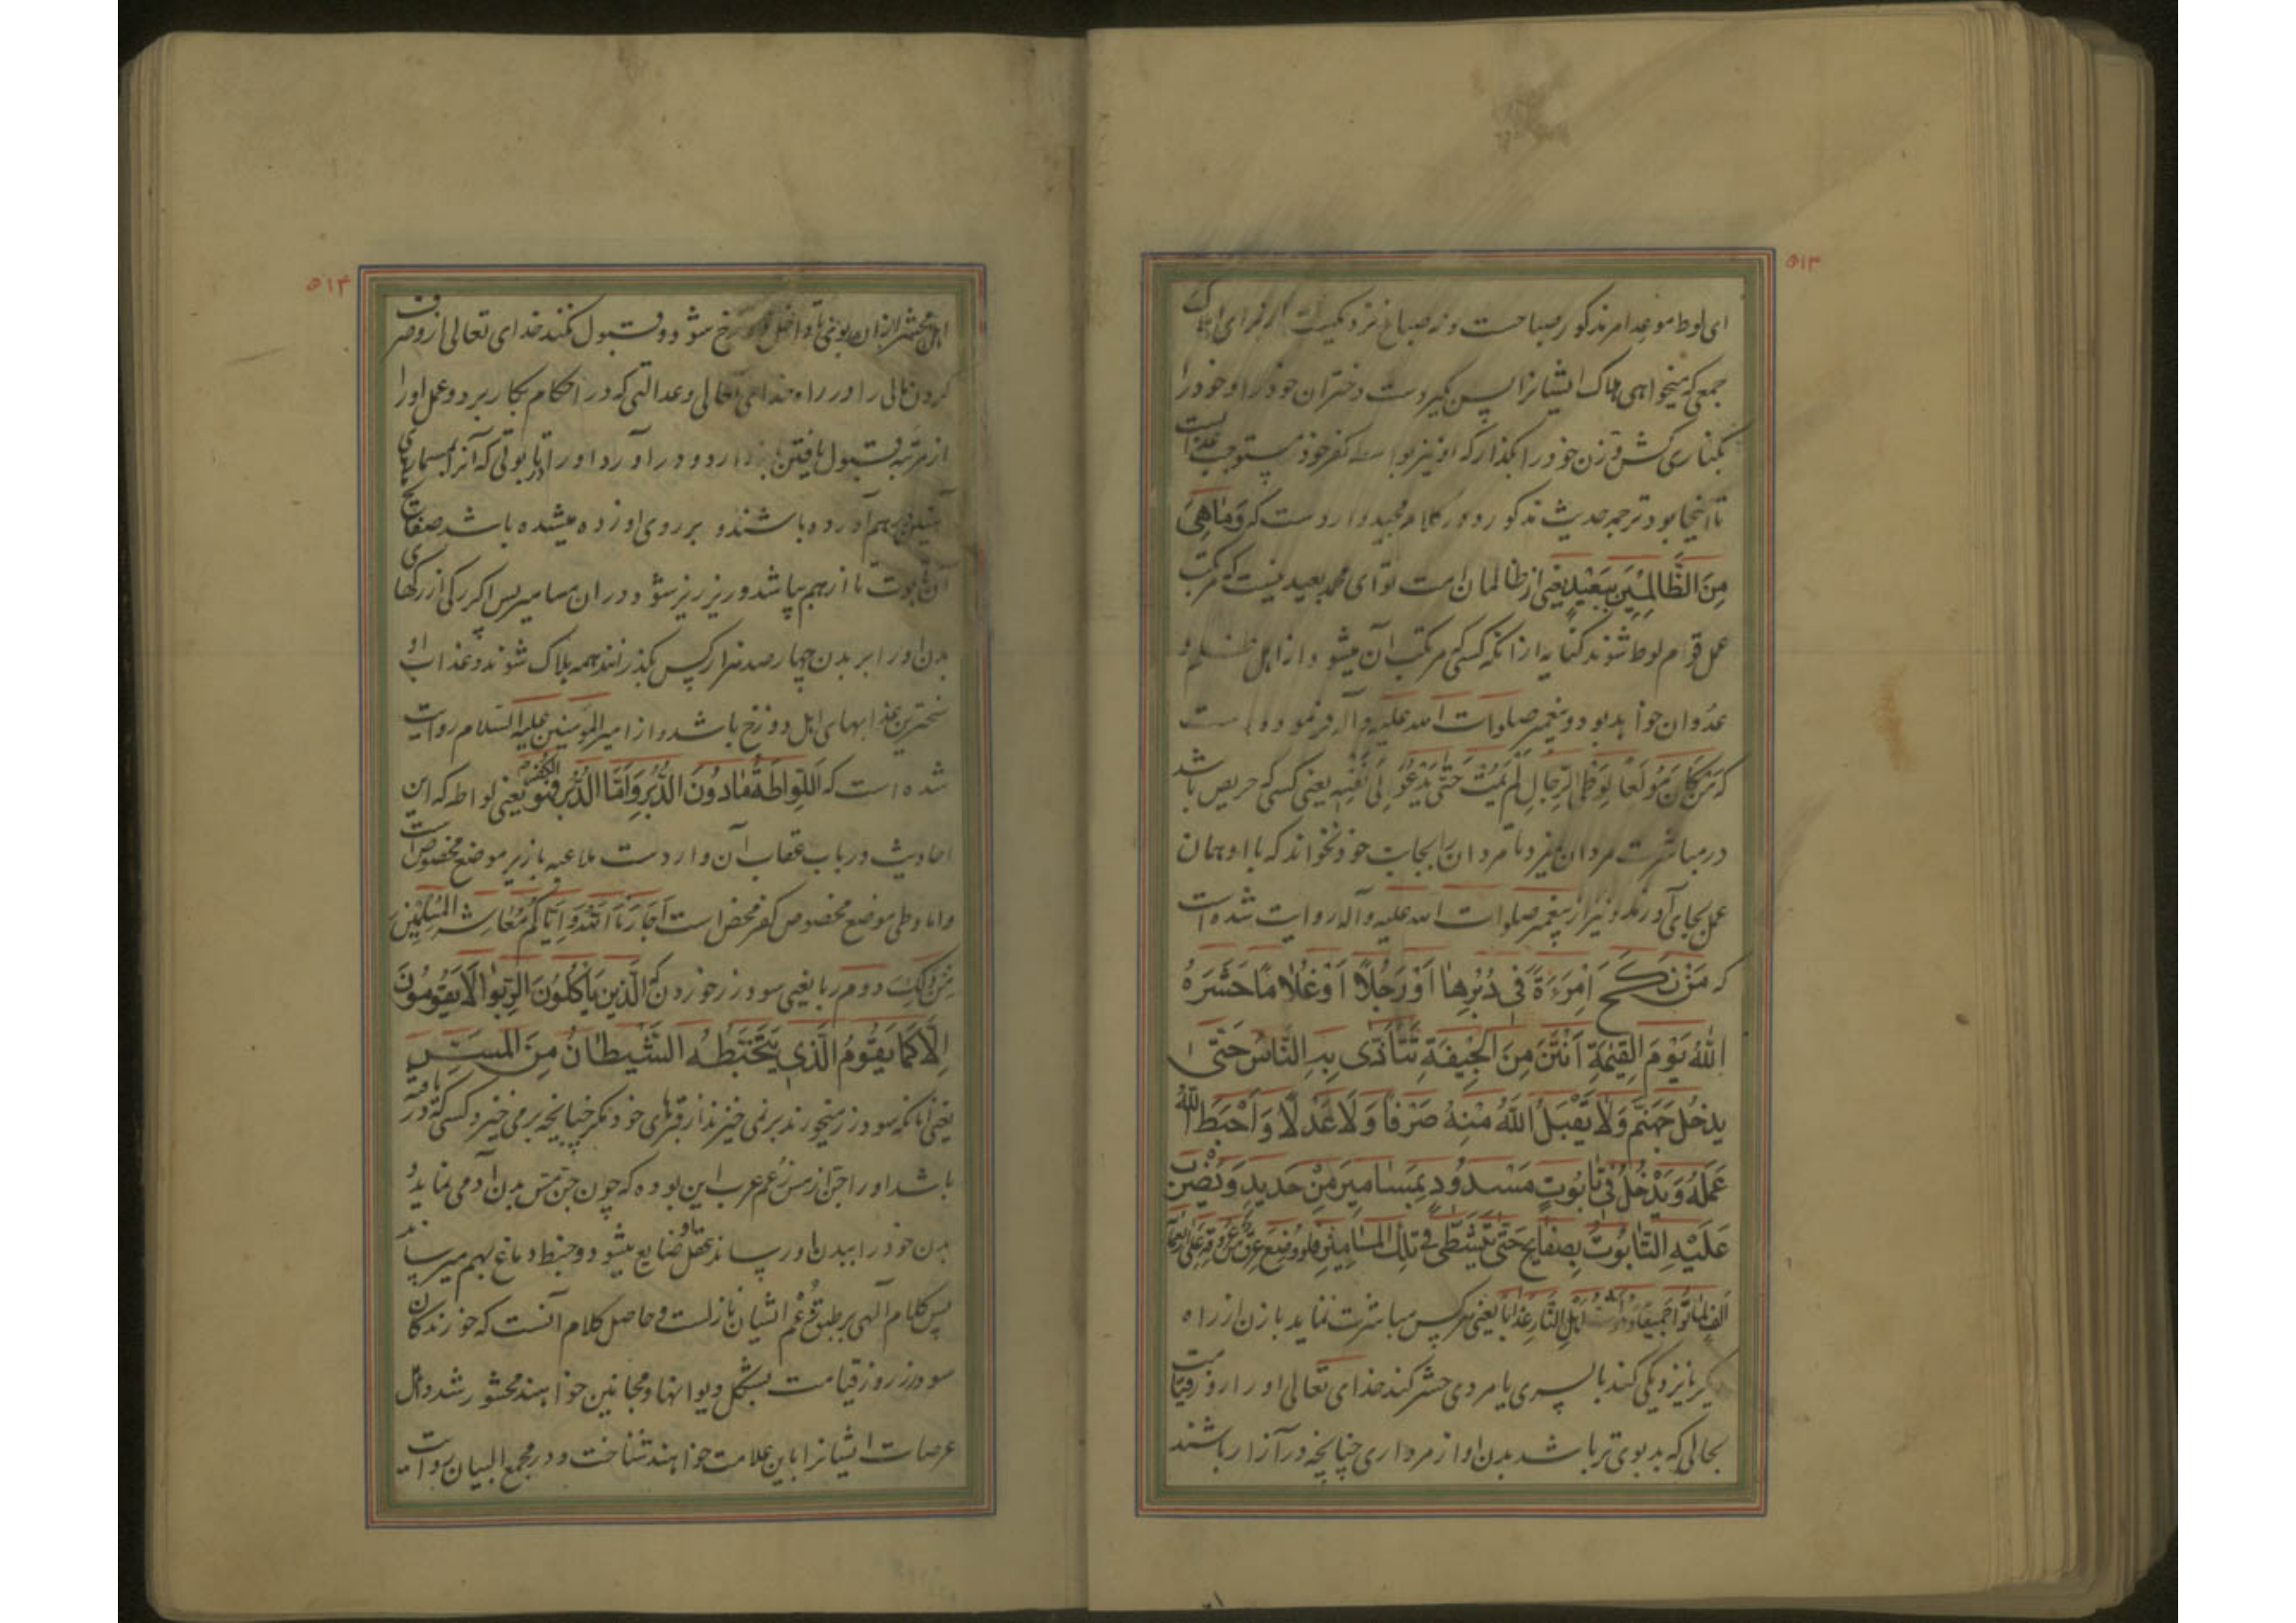 ۵۱۳
ای لوط موعد امر مذکور صباحست و نه صباح نزدیکیست از برای هلاک
جمعی که میخواهی هلاک ایشانرا پس بگیر دست دختران خود را و خود را
بکناری کش و زن خود را بگذار که او نیز بواسطه کفر خود مستوجب عذابست
تا اینجا بود ترجمه حدیث مذکور و در کلام مجید واردست که وَمَا هِیَ
مِنَ الظَّالِمِیْنَ بِبَعِیْدٍ یعنی از ظالمان امت تو ای محمد بعید نیست که مرتکب
عمل قوم لوط شوند کنایه از آنکه کسی که مرتکب آن میشود از اهل ظلم و
عدوان خواهد بود و پیغمبر صلوات الله علیه و آله فرموده است
که مَنْ کَانَ مُولَعاً بِوَطْیِ الرِّجَالِ لَمْ یَمُتْ حَتَّی یَدْعُوَ اِلَی نَفْسِهِ یعنی کسی که حریص باشد
در مباشرت مردان نمیرد تا مردان را بجانب خود نخواند که با او همان
عمل بجای آورند و نیز از پیغمبر صلوات الله علیه و آله روایت شده است
که مَنْ نَکَحَ اِمْرَءَةً فی دُبُرِهَا اَوْ رَجُلًا اَوْ غُلَامًا حَشَرَهُ
اللهُ یَوْمَ الْقِیٰمَةِ اَنْتَنَ مِنَ الْجِیفَةِ تَتَأَذّی بِهِ النَّاسُ حَتّی
یدْخُلَ جَهَنَّمَ وَلَا یَقْبَلُ اللهُ مِنْهُ صَرْفًا وَلَا عَدْلًا وَاَحْبَطَ اللهُ
عَمَلَهُ وَیَدْخُلُ فی تَابُوتٍ مَسْدُودٍ بِمَسَامِیرَ مِنْ حَدِیدٍ وَیُضْرَبُ
عَلَیْهِ التَّابُوتُ بِصَفَایِحَ حَتّی یَتَشَظّی فی تِلْکَ الْمَسَامِیْرِ فلو وُضِعَ عِرْقٌ مِنْ عُرُوقِهِ عَلی اَرْبَعَمِائَةِ
اَلْفٍ لَمَاتُوا جَمِیعًا وَهُوَ اَشَدُّ اَهْلِ النَّارِ عَذَابًا یعنی هر کس مباشرت نماید با زن از راه
دُبُر یا نزدیکی کند با پسری یا مردی حشر کند خدای تعالی او را روز قیامت
بحالی که بدبوی تر باشد بدن او از مرداری چنانچه در آزار باشند
۵۱۴
اهل محشر از آن بوی تا داخل دوزخ شود و قبول نکند خدای تعالی ازو صرف
کردن مالی را در راه خدای تعالی و عدالتی که در احکام بکار برد و عمل او را
از مرتبه قبول یافتن باز دارد و در آورد او را در تابوتی که آنرا بمسمارهای
آهنین بهم آورده باشند و بر روی او زده میشده باشد صفایح
آن تابوت تا از هم بپاشد و ریز ریز شود در آن مسامیر پس اگر رگی از رگهای
بدن او را بر بدن چهار صد هزار کس بگذرانند همه هلاک شوند و عذاب او
سختترین عذابهای اهل دوزخ باشد و از امیر المؤمنین علیه السلام روایت
شده است که اَللِّوَاطَةُ مَادُونَ الدُّبُرِ وَاَمَّا الدُّبُرُ فَهُوَ الکُفْرُ یعنی لواطه که این
احادیث در باب عقاب آن واردست ملاعبه با زیر موضع مخصوص است
و اما وطی موضع مخصوص کفر محض است اَجَارَنَا اللهُ وَاِیَّاکُمْ مَعَاشِرَ الْمُسْلِمِیْنَ
مِنْ ذٰلِکَ دوم ربا یعنی سود زر خوردن که الَّذِینَ یَأْکُلُونَ الرِّبٰوا لَا یَقُومُونَ
اِلَّا کَمَا یَقُومُ الَّذِی یَتَخَبَّطُهُ الشَّیْطَانُ مِنَ الْمَسِّ
یعنی آنانکه سود زر میخورند بر نمی خیزند از قبرهای خود مگر چنانچه بر می خیزد کسی که دریافته
باشد او را جن از مس زعم عرب این بوده که چون جن مس بدن آدمی نماید و
بدن خود را ببدن او رساند عقل او ضایع میشود و خبط دماغ بهم میرساند
پس کلام الهی بر طبق زعم ایشان نازلست و حاصل کلام آنست که خورندگان
سود زر روز قیامت بشکل دیوانها و مجانین خواهند محشور شد و اهل
عرصات ایشانرا باین علامت خواهند شناخت و در مجمع البیان روایت